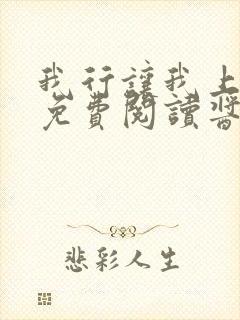 我行讓我上
免費閱讀醬
悲彩人生